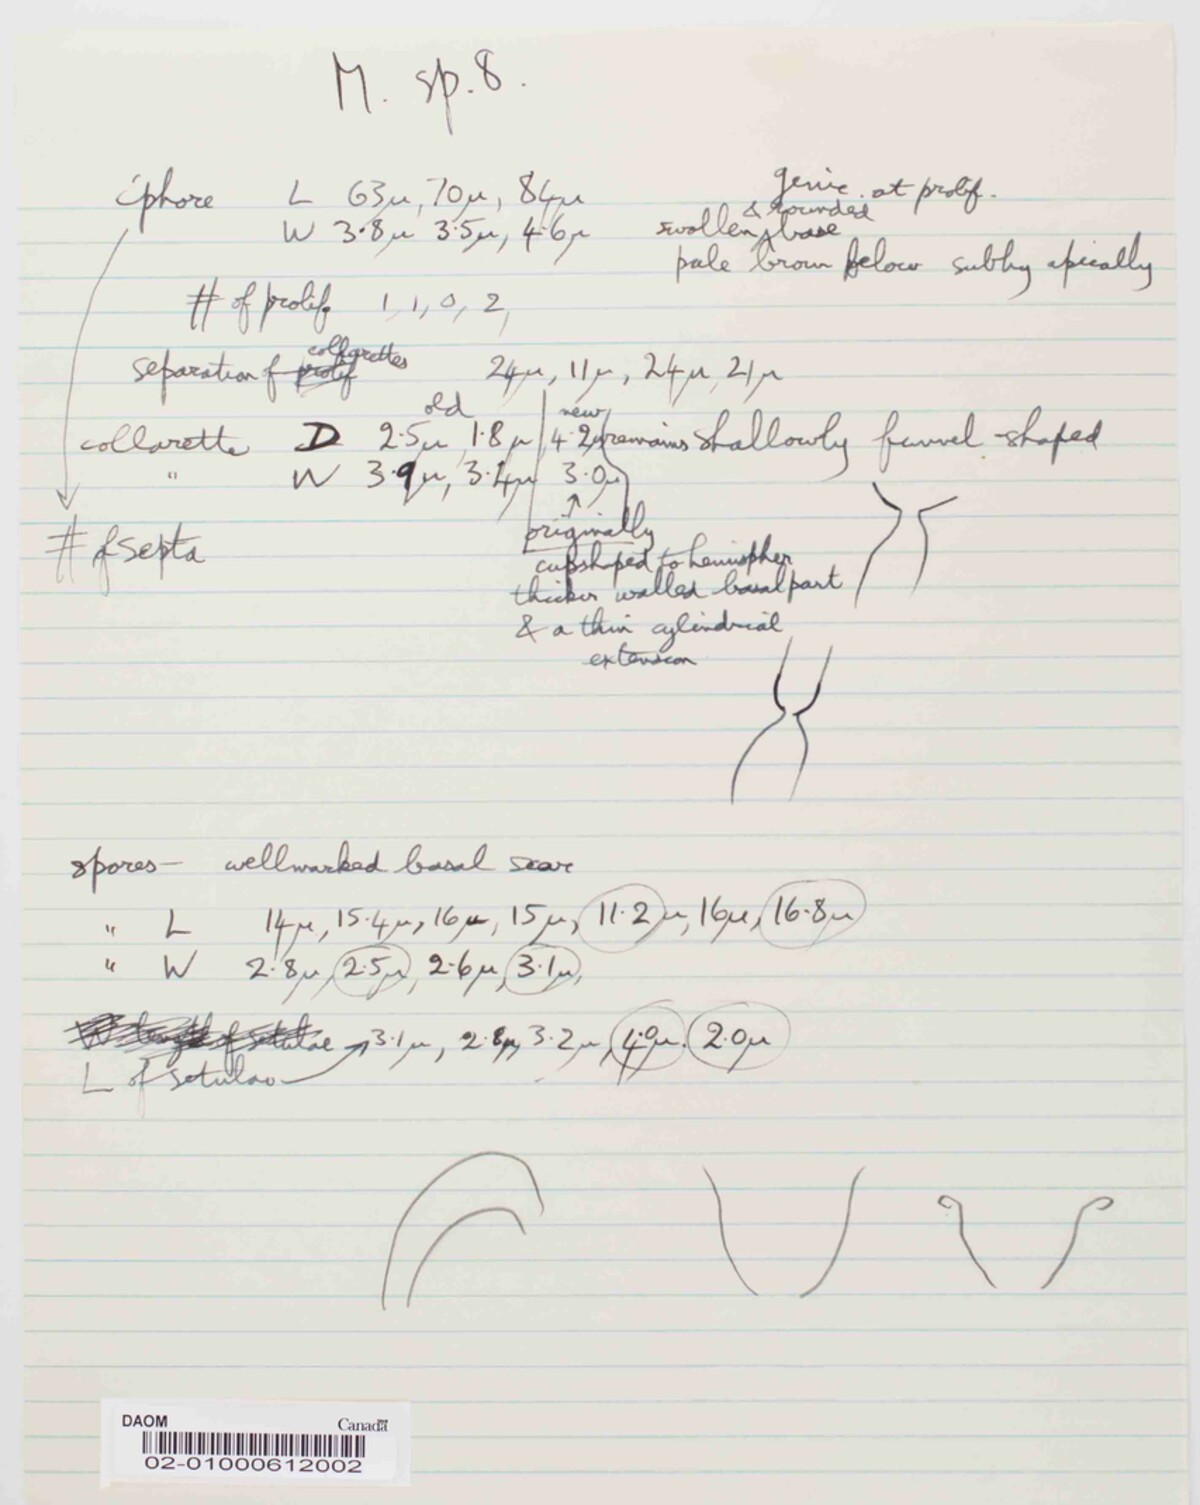 M. sp. 8.
c'phore L 63μ, 70μ, 84μ genic. at prolif.
W 3.8μ 3.5μ, 4.6μ swollen & rounded base
pale brown below subhy apically
# of prolif. 1, 1, 0, 2,
separation of prolif collarettes 24μ, 11μ, 24μ, 21μ
old new
collarette D 2.5μ, 1.8μ 4.2μ remains shallowly funnel-shaped
" W 3.9μ, 3.4μ 3.0μ
# of septa
originally
cupshaped to hemispher
thicker walled basal part
& a thin cylindrical
extension
spores— wellmarked basal scar
" L 14μ, 15.4μ, 16μ, 15μ, 11.2μ, 16μ, 16.8μ
" W 2.8μ, 2.5μ, 2.6μ, 3.1μ,
W length of setulae 3.1μ, 2.8μ, 3.2μ, 4.0μ. 2.0μ
L of setulae
DAOM Canada
02-01000612002